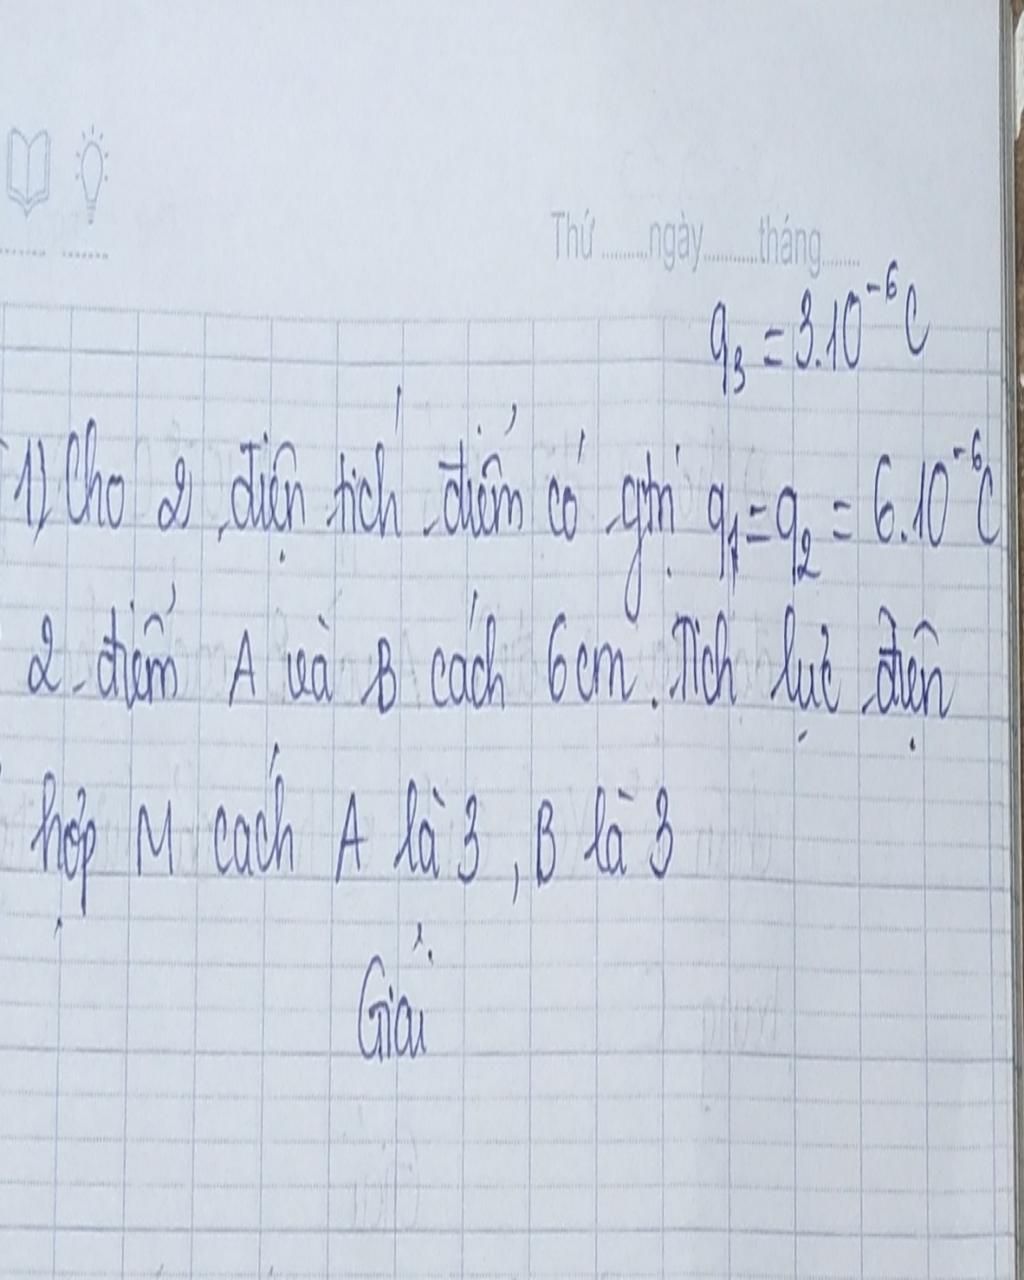 Thứ ........ngày..........tháng.......
q₃ = 3.10⁻⁶C
1) Cho 2 điện tích điểm có gtrị q₁ = q₂ = 6.10⁻⁶C
2 điểm A và B cách 6cm. Tích lực điện
hợp M cách A là 3, B là 3
Giải